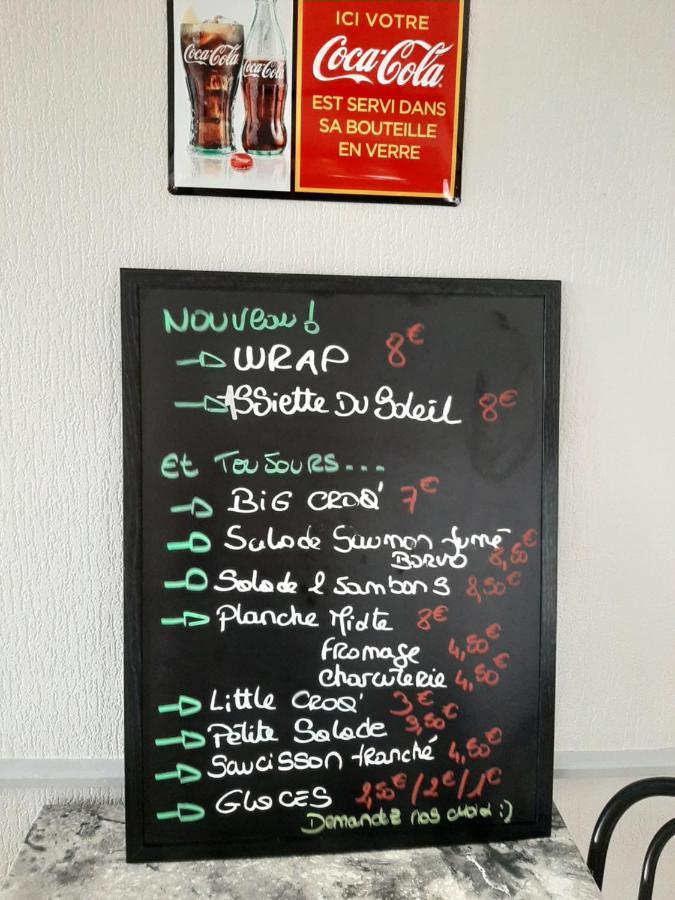 ICI VOTRE
Coca-Cola
EST SERVI DANS
SA BOUTEILLE
EN VERRE
Coca-Cola
Coca-Cola
NOUVEAU !
WRAP 8€
ASSiette DU Soleil 8€
Et TOUJOURS...
BIG CROQ' 7€
Salade Saumon fumé
BORVO 8,50€
Salade 2 Jambons 8,50€
Planche Mixte 8€
fromage 4,50€
charcuterie 4,50€
Little CROQ' 3€
Petite Salade 3,50€
Saucisson tranché 4,50€
GLACES 2,50€/2€/1€
Demandez nos choix :)